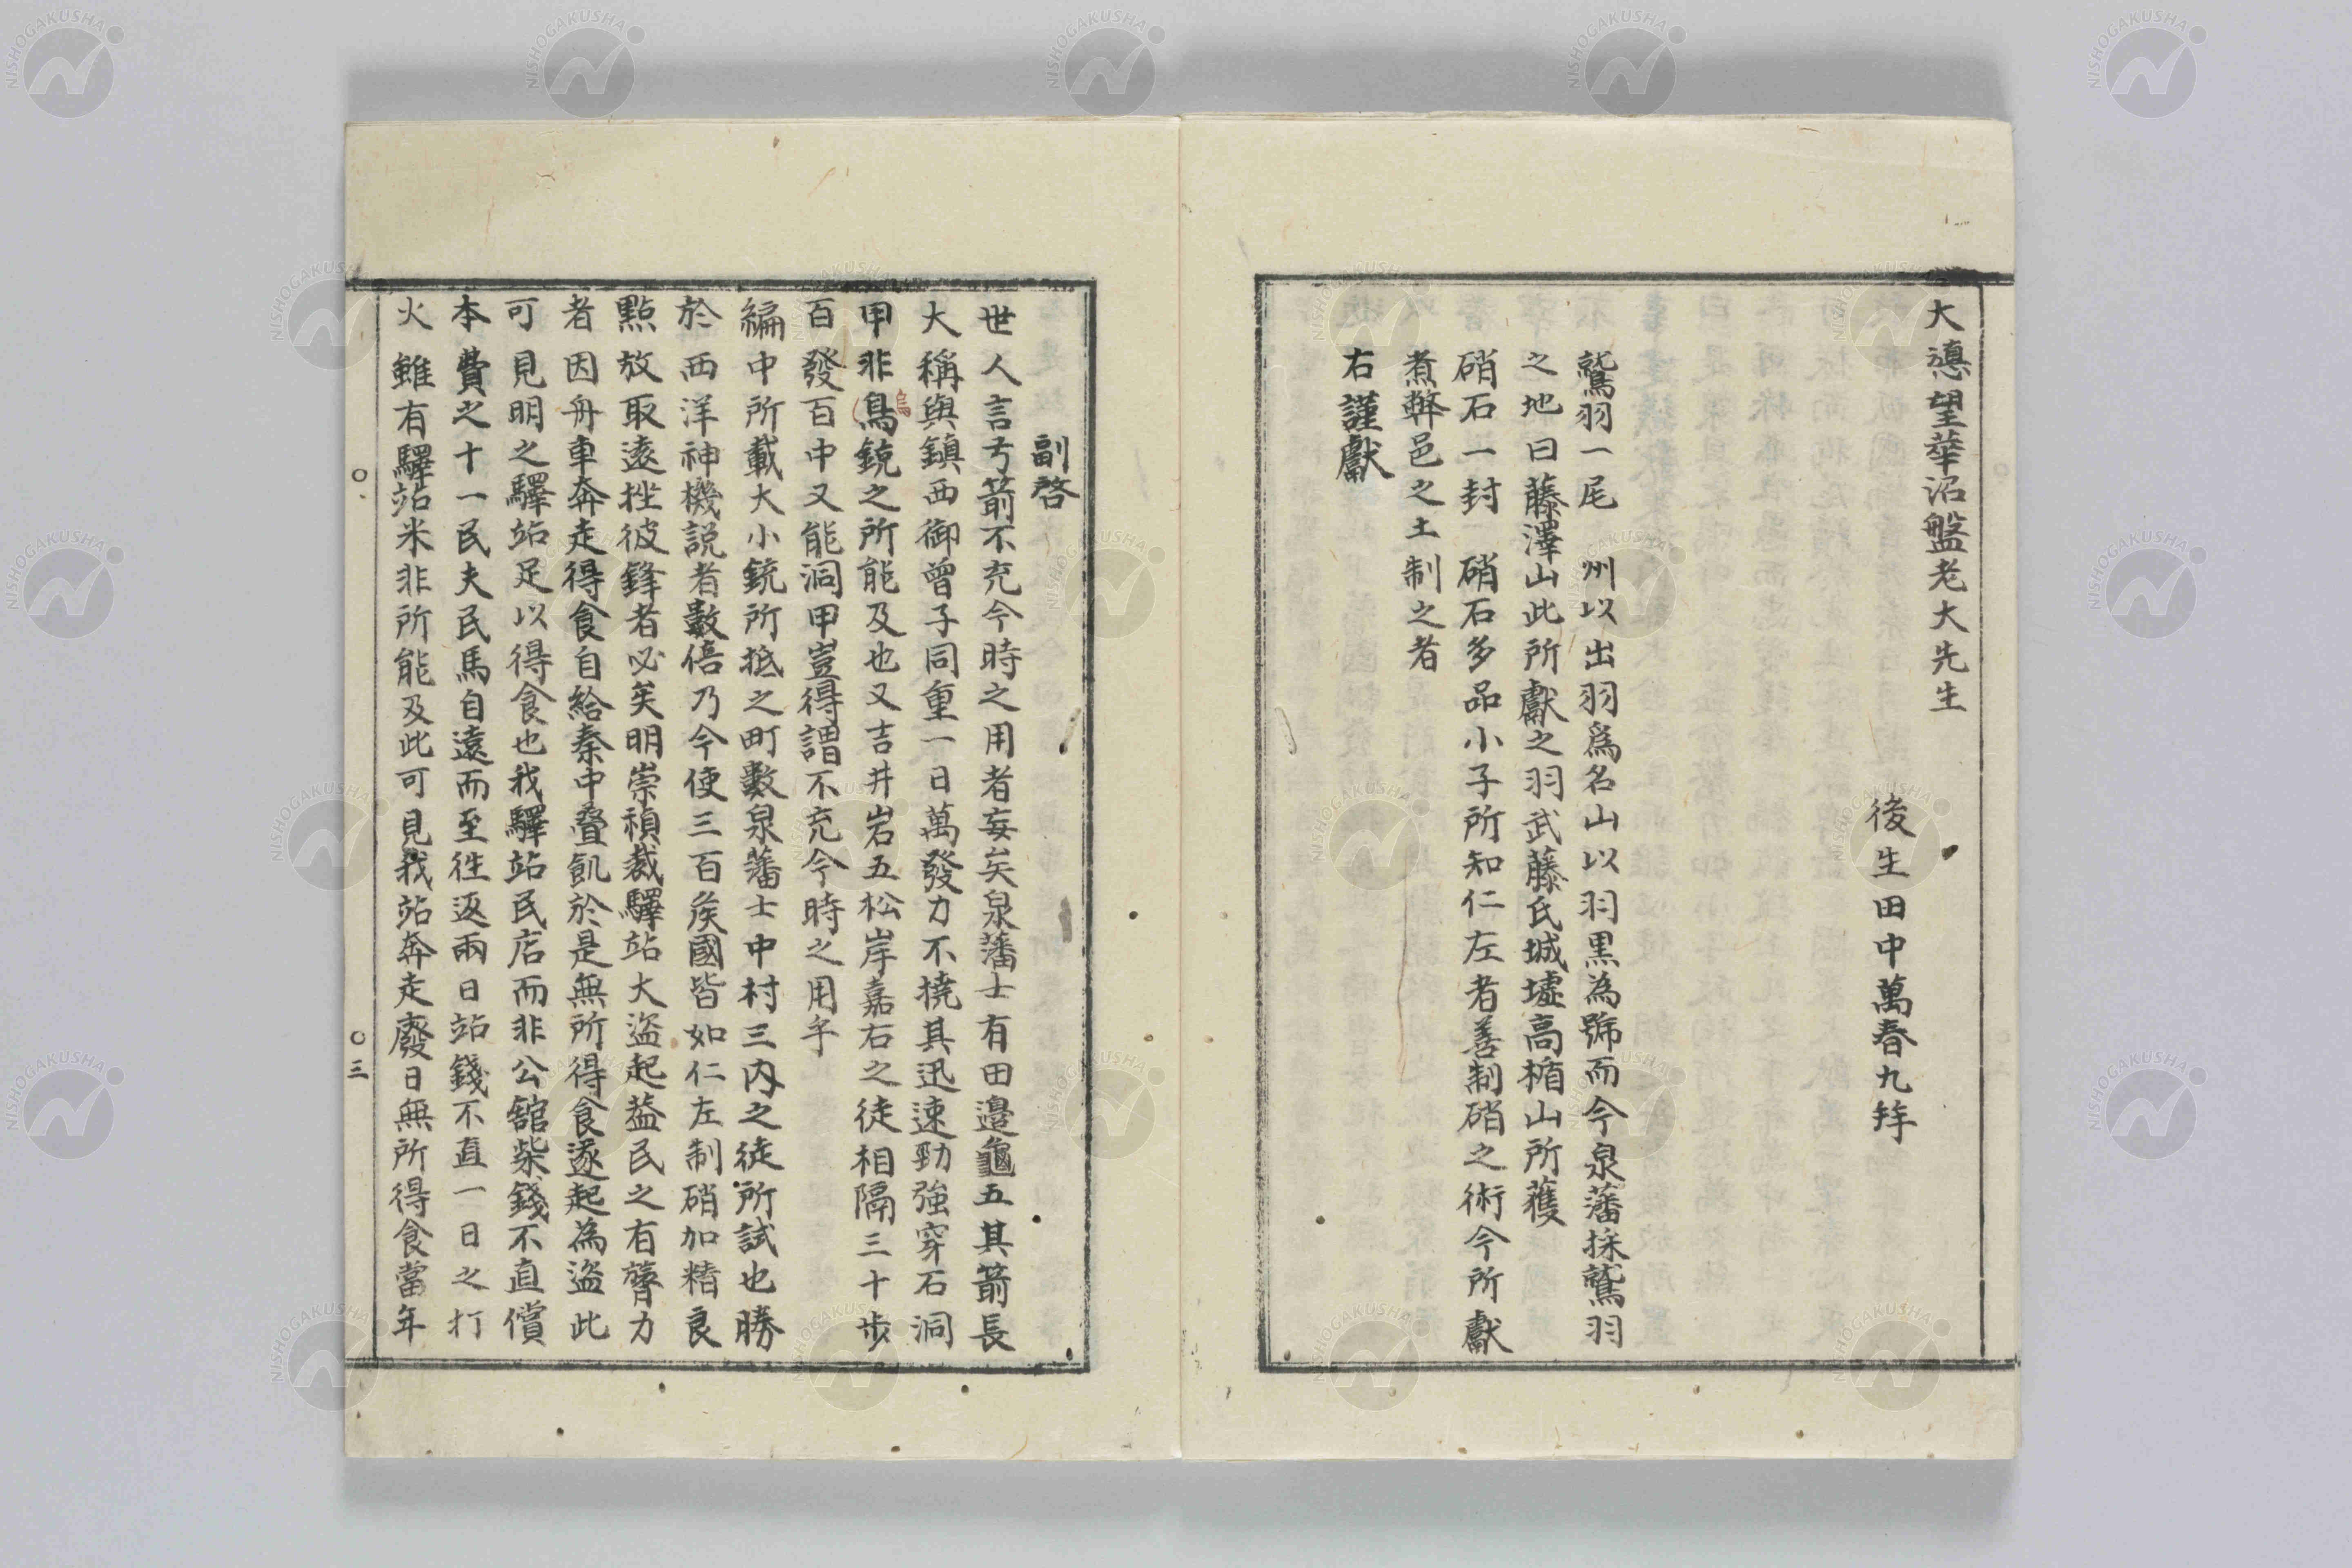 大憓望華沼盤老大先生
後生田中萬春九拜
鷲羽一尾　州以出羽爲名山以羽黒為號而今泉藩採鷲羽
之地曰藤澤山此所獻之羽武藤氏城墟高楯山所蔆
硝石一封　硝石多品小子所知仁左者善制硝之術今所獻
煮弊邑之土制之者
右謹獻
副啓
世人言弓箭不充今時之用者妄矣泉藩士有田邉龜五其箭長
大稱與鎮西御曾子同重一日萬發力不撓其迅速勁強穿石洞
甲非鳥銃之所能及也又吉井岩五松岸嘉右之徒相隔三十歩
烏
百發百中又能洞甲豈得謂不充今時之用乎
編中所載大小銃所抵之町數泉藩士中村三内之徒所試也勝
於西洋神機説者數倍乃今使三百矦國皆如仁左制硝加精良
點放取遠挫彼鋒者必矣明崇禎裁驛站大盗起葢民之有膂力
者因舟車奔走得食自給秦中疊飢於是無所得食遂起為盗此
可見明之驛站足以得食也我驛站民店而非公舘柴錢不直償
本費之十一民夫民馬自遠而至徃返兩日站錢不直一日之打
火雖有驛站米非所能及此可見我站奔走廢日無所得食當年
三
NISHOGAKUSHA